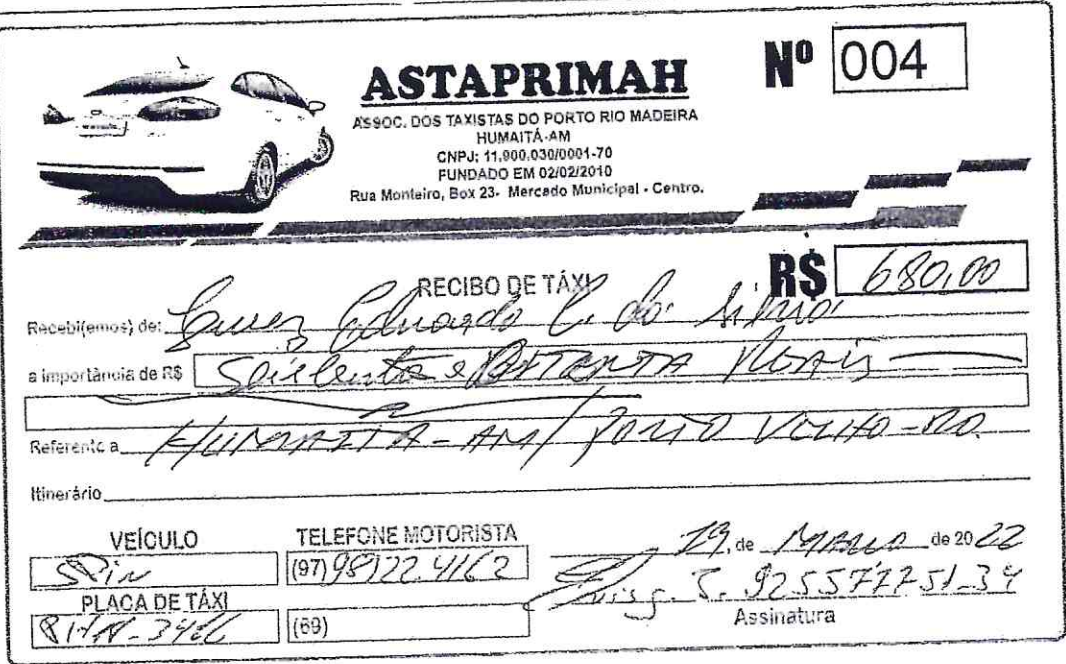 ASTAPRIMAH
Nº 004
ASSOC. DOS TAXISTAS DO PORTO RIO MADEIRA
HUMAITÁ-AM
CNPJ: 11.900.030/0001-70
FUNDADO EM 02/02/2010
Rua Monteiro, Box 23- Mercado Municipal - Centro.
RECIBO DE TÁXI
R$ 680,00
Recebi(emos) de: Eduardo C. da Silva
a importância de R$ Seiscentos e OITENTA REAIS
Referente a HUMAITA-AM/PORTO VELHO-RO.
Itinerário
VEÍCULO
SPIN
TELEFONE MOTORISTA
(97) 98122.4162
PLACA DE TÁXI
(69)
de de 2022
925577751-34
Assinatura